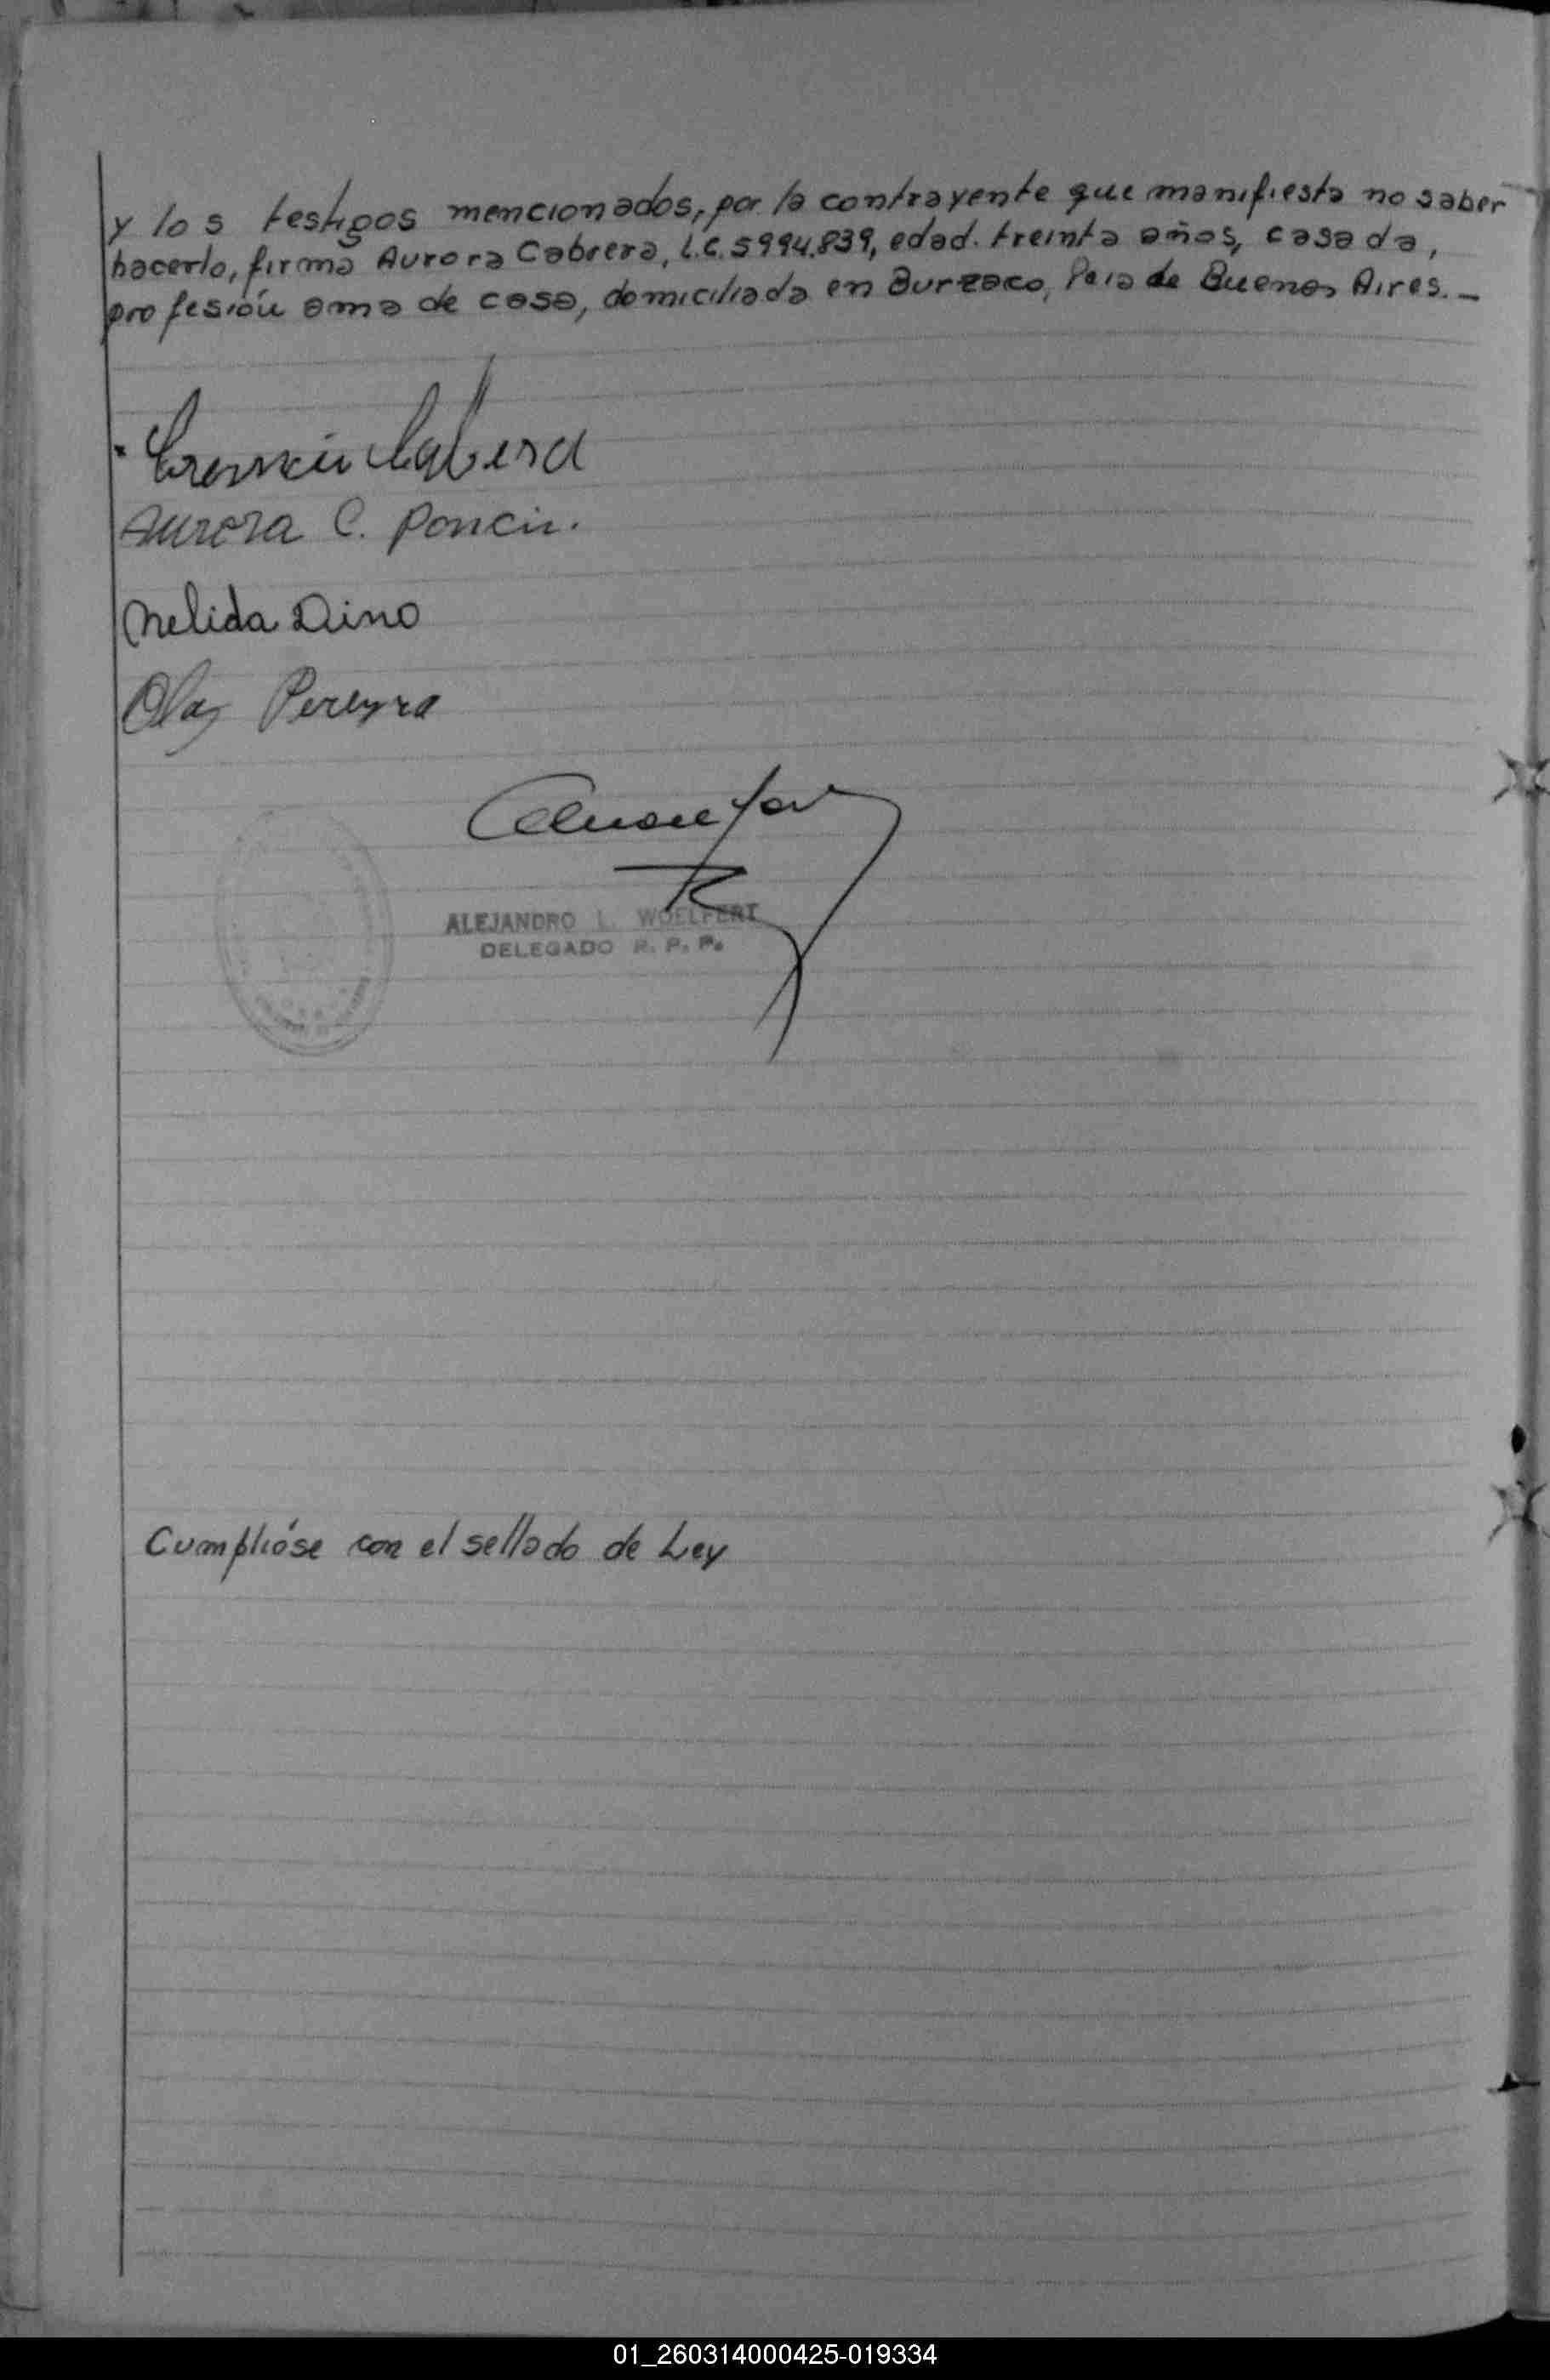 y los testigos mencionados, por la contrayente que manifiesta no saber
hacerlo, firma Aurora Cabrera, L.C. 5994.839, edad. treinta años, casada,
profesión ama de casa, domiciliada en Burzaco, Pcia de Buenos Aires._
Cabrera
Aurora C. Poncin.
Nelida Dino
Olga Pereyra
ALEJANDRO L. WOELFERT
DELEGADO R. P. P.
Cumplióse con el sellado de Ley
01_260314000425-019334